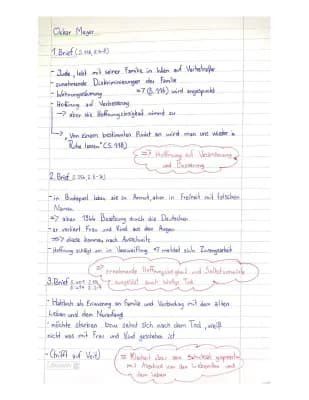 Oskar Meyer
1. Brief (S. 116, Z. 5-8)
- Jude, lebt mit seiner Familie in Wien auf
- zunehmende Diskriminierungen der Familie
- Wohnungsräumung => (S. 116) wird angespuckt
- Hoffnung auf Verbesserung
-> aber die Hoffnungslosigkeit nimmt zu
-> „Von einem bestimmten Punkt an wird man uns wieder in
Ruhe lassen" (S. 118)
=> Hoffnung auf Verbesserung
und Besserung
2. Brief
- in Budapest leben sie in Armut, aber in Freiheit mit falschen
Namen
=> aber 1944 Besatzung durch die Deutschen
- er verliert Frau und Kind aus den Augen
=> diese kommen nach Auschwitz
- Hoffnung schlägt um in Verzweiflung => meldet sich Zwangsarbeit
=> zunehmende Hoffnungslosigkeit und
ausgelöst durch Tod
3. Brief
- Halstuch als Erinnerung an Familie und Verbindung mit dem alten
Leben und dem Neuanfang
- möchte sterben bzw. sehnt sich nach dem Tod, weiß
nicht was mit Frau und Kind geschehen ist
- (trifft auf Veit)
=> Mitleid über sein Schicksal
mit Abschied von den Liebenden und
dem Leben